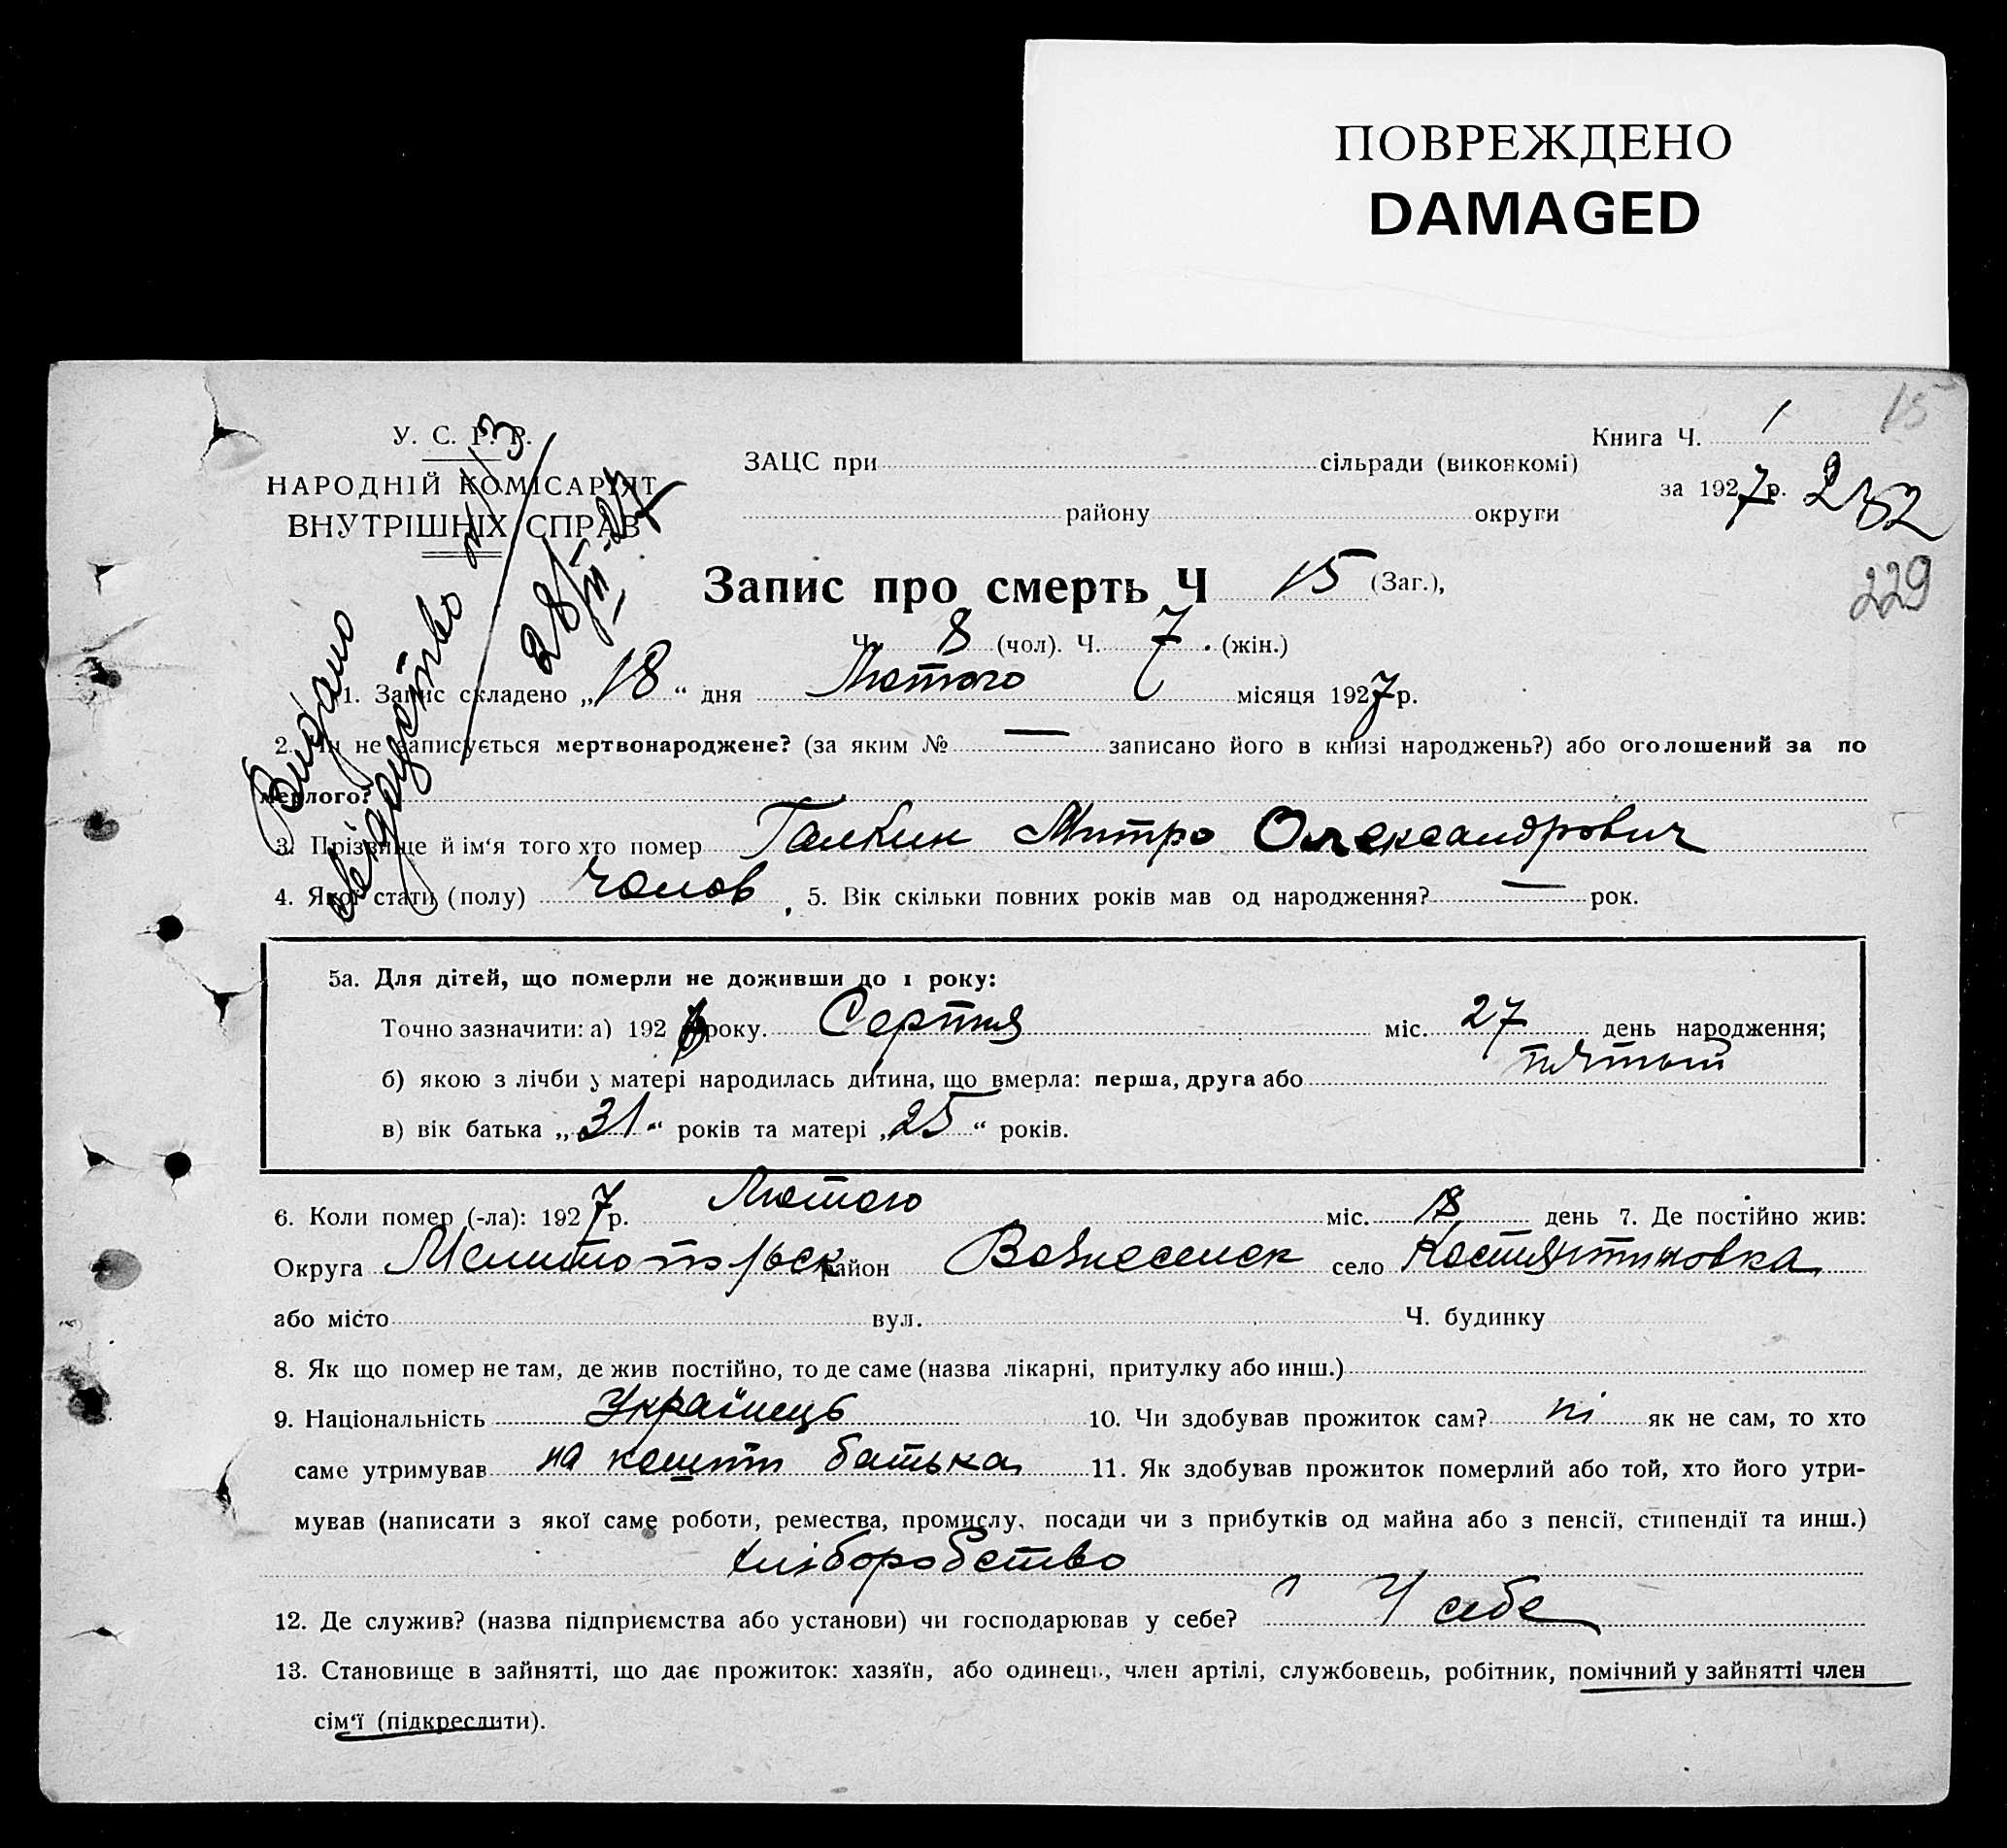 ПОВРЕЖДЕНО
DAMAGED
15
У. С. Р. Р.
НАРОДНІЙ КОМІСАРІЯТ
ВНУТРІШНІХ СПРАВ
Видано
свідоцтво
28/III-27
ЗАЦС при сільради (виконкомі)
району округи
Книга Ч. 1
за 1927р. 232
229
Запис про смерть Ч 15 (Заг.),
Ч. 8 (чол). Ч. 7. (жін.)
1. Запис складено „18“ дня Лютого місяця 1927р.
2. Чи не записується мертвонароджене? (за яким № — записано його в книзі народжень?) або оголошений за по
мерлого?
3. Прізвище й ім'я того хто помер Галкин Митро Олександрович
4. Якої стати (полу) чолов. 5. Вік скільки повних років мав од народження? — рок.
5а. Для дітей, що померли не доживши до 1 року:
Точно зазначити: а) 192 року. Серпня міс. 27 день народження;
б) якою з лічби у матері народилась дитина, що вмерла: перша, друга або пятый
в) вік батька „31“ років та матері „25“ років.
6. Коли помер (-ла): 1927р. Лютого міс. 18 день 7. Де постійно жив:
Округа Мелитопольск район Вознесенск село Костянтиновка
або місто вул. Ч. будинку
8. Як що помер не там, де жив постійно, то де саме (назва лікарні, притулку або инш.)
9. Національність Українець 10. Чи здобував прожиток сам? ні як не сам, то хто
саме утримував на кошти батька 11. Як здобував прожиток померлий або той, хто його утри-
мував (написати з якої саме роботи, ремества, промислу, посади чи з прибутків од майна або з пенсії, стипендії та инш.)
хліборобство
12. Де служив? (назва підприємства або установи) чи господарював у себе? У себе
13. Становище в зайнятті, що дає прожиток: хазяїн, або одинець, член артілі, службовець, робітник, помічний у зайнятті член
сім'ї (підкреслити).